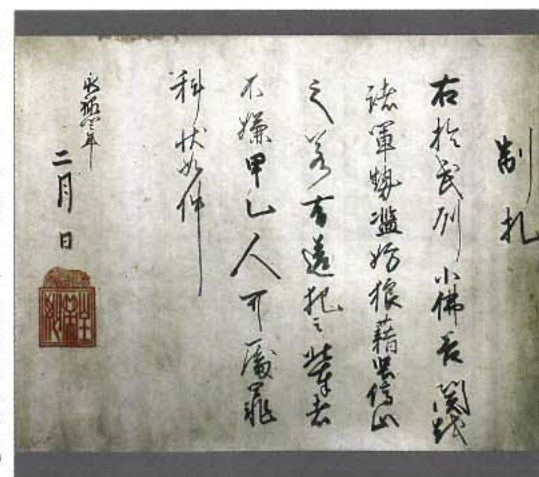 制札
右於武州小佛谷
諸軍勢濫妨狼藉堅停止
之若有違犯之輩者
不嫌甲乙人可處罪
科状如件
永禄 年
二月日